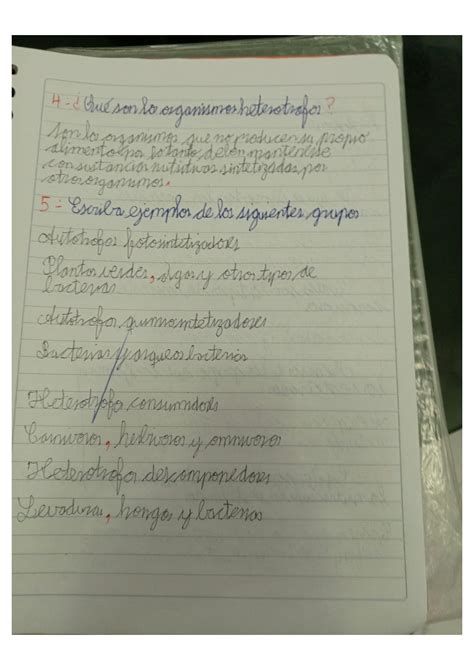 4-¿Qué son los organismos heterotrofos?
Son los organismos que no producen su propio
alimento por lo tanto, deben mantenerse
con sustancias nutritivas sintetizadas por
otros organismos.
5- Escriba ejemplos de los siguientes grupos
Autótrofos fotosintetizadores
Plantas verdes, algas y otros tipos de
bacterias
Autótrofos quimiosintetizadores
Bacterias y arqueobacterias
Heterótrofo consumidores
Carnívoros, herbívoros y omnívoros
Heterótrofos descomponedores
Levaduras, hongos y bacterias